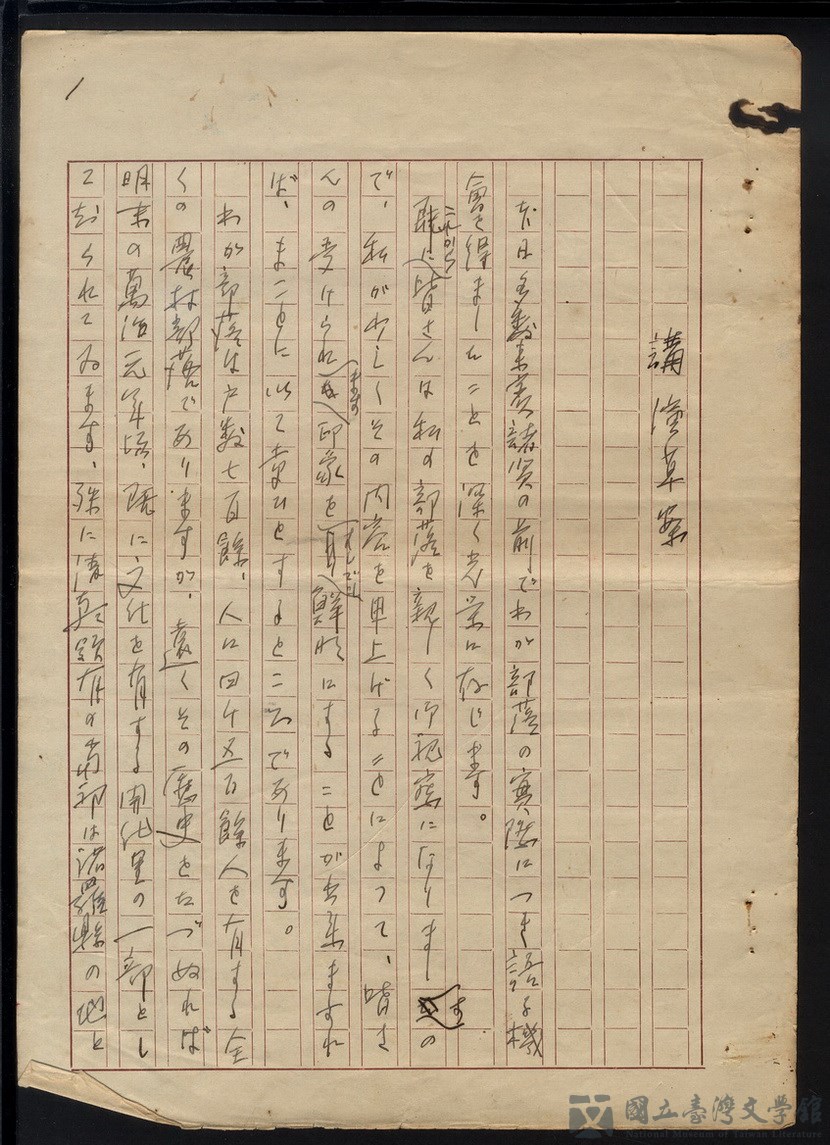 1
講演草案
本日多数来賓諸賢の前でわが部落の實際につき語る機
會を得ましたことを深く光栄に存じます。
これから
既に皆さんは私の部落を親しく御視察になりますの
で、私がわしくその内容を申上げることによつて、皆さ
んの受けられます印象を一層鮮明にすることが出来ますれ
ば、まことに以て幸ひとするところであります。
わが部落は戸数七百餘、人口四千五百餘人を有する全
くの農村部落でありますが、遠くその歴史をたづぬれば
明末の萬治元年頃、既に文化を有する開化里の一部とし
て知られてゐます、殊に清朝領有の当初は諸羅縣の地と
國立臺灣文學館
National Museum of Taiwan Literature